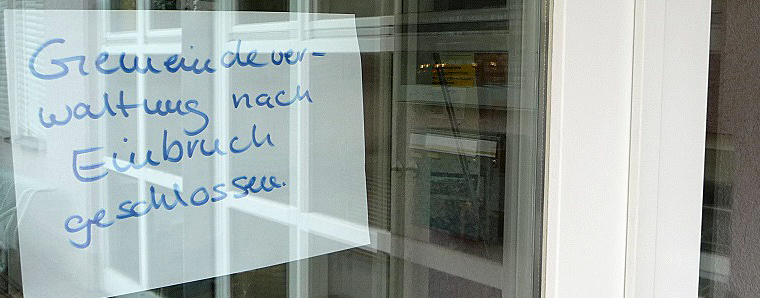 Gemeindever-
waltung nach
Einbruch
geschlossen.